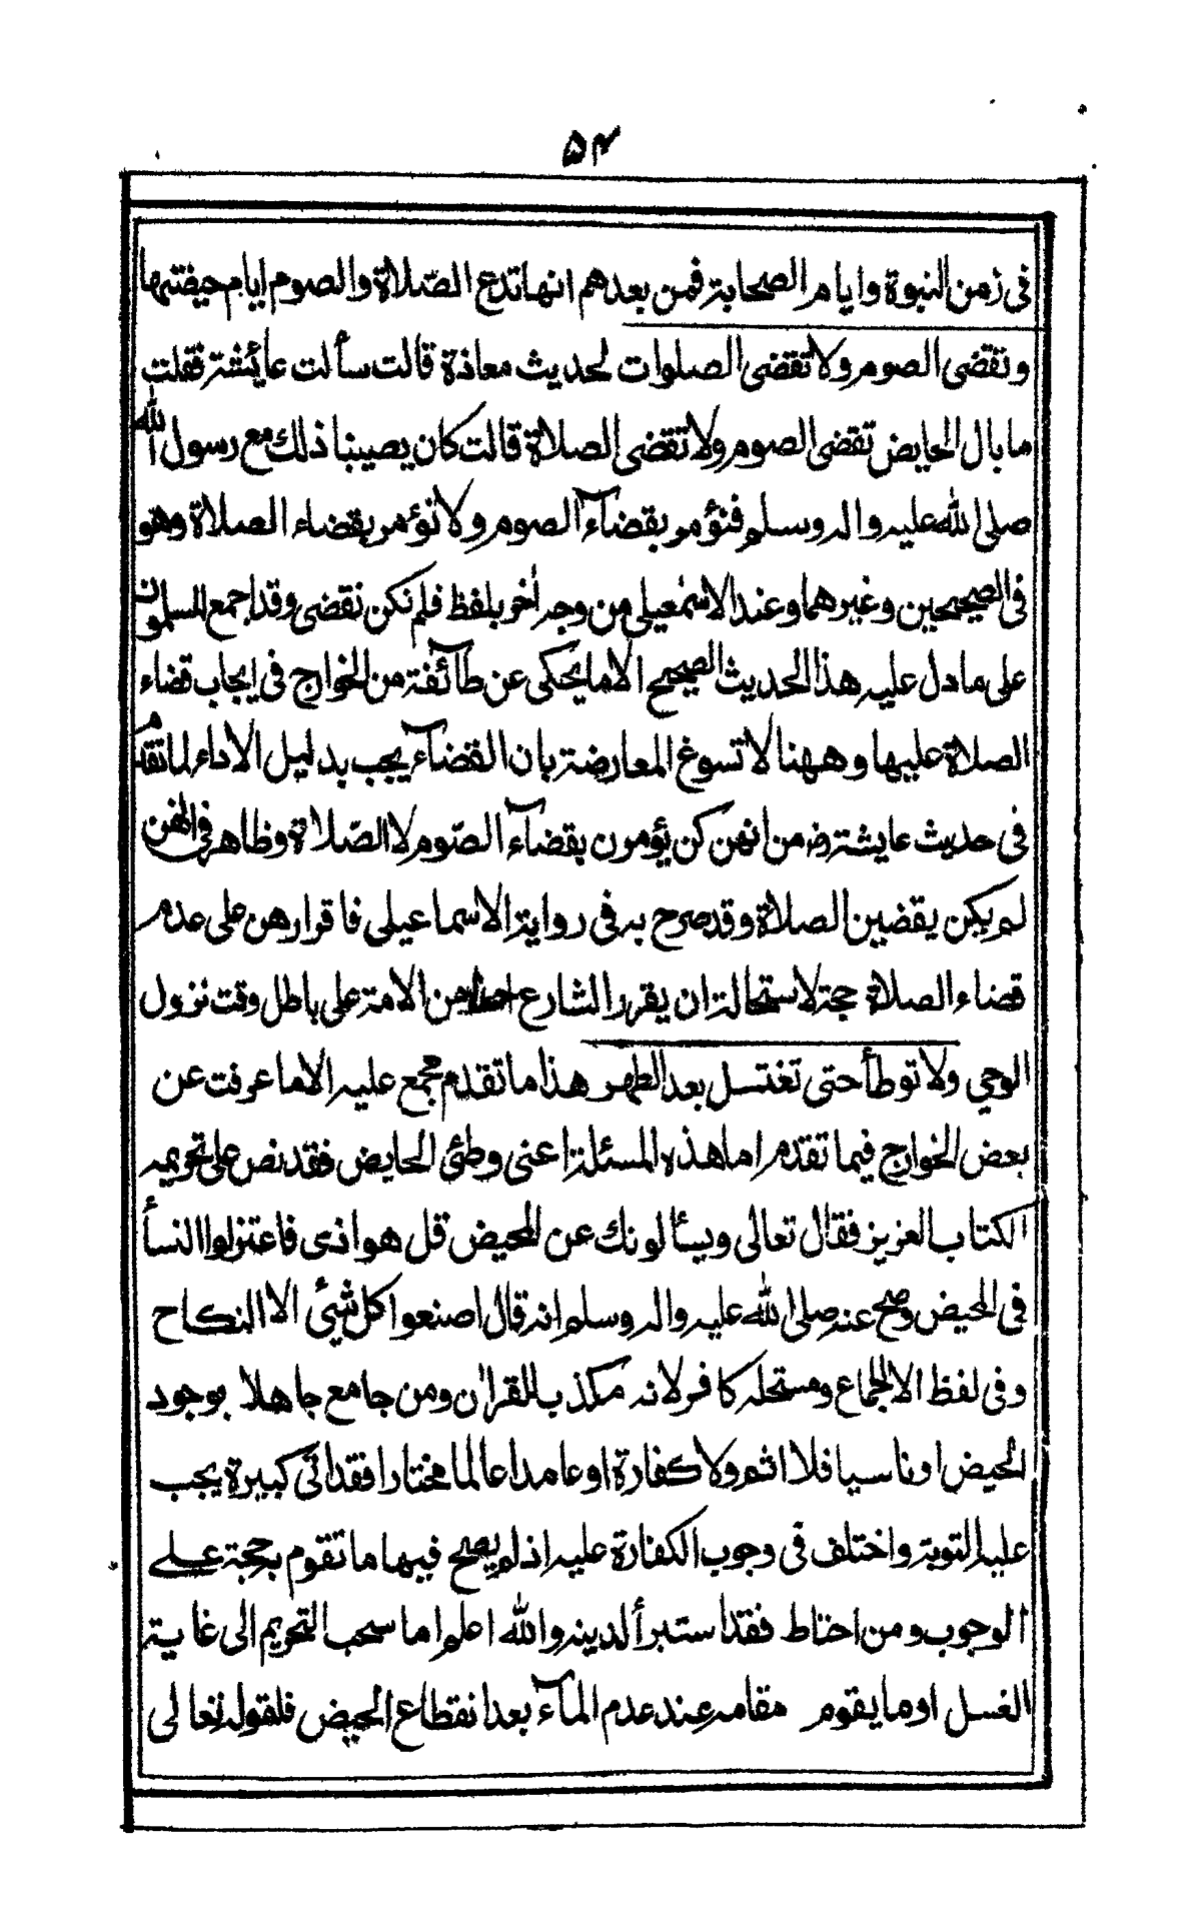 ۵۴
فى زمن النبوة وايام الصحابة فمن بعدهم انها تدع الصّلاة والصوم ايام حيضتها
وتقضى الصوم ولا تقضى الصلوات لحديث معاذة قالت سألت عائشة فقلت
ما بال الحايض تقضى الصوم ولا تقضى الصلاة قالت كان يصيبنا ذلك مع رسول الله
صلى الله عليه واله وسلم فنؤمر بقضآء الصوم ولا نؤمر بقضاء الصلاة وهو
فى الصحيحين وغيرهما وعند الاسمعيلى من وجه أخر بلفظ فلم نكن نقضى وقد اجمع المسلمون
على ما دل عليه هذا الحديث الصحيح الا ما يحكى عن طآئفة من الخوارج فى ايجاب قضاء
الصلاة عليها وههنا لا تسوغ المعارضة بان القضآء يجب بدليل الاداء لما تقدم
فى حديث عايشة رض من انهن كن يؤمرن بقضآء الصّوم لا الصّلاة وظاهر فى انهن
لم يكن يقضين الصلاة وقد صرح به فى رواية الاسماعيلى فاقرارهن على عدم
قضاء الصلاة حجة لاستحالة ان يقرر الشارع احدا من الامة على باطل وقت نزول
الوحي ولا توطأ حتى تغتسل بعد الطهر هذا ما تقدم مجمع عليه الا ما عرفت عن
بعض الخوارج فيما تقدم اما هذه المسئلة اعنى وطئ الحايض فقد نص على تحريمه
الكتاب العزيز فقال تعالى ويسألونك عن المحيض قل هو اذى فاعتزلوا النسأ
فى المحيض وصح عنه صلى الله عليه واله وسلم انه قال اصنعوا كل شئ الا النكاح
وفى لفظ الا الجماع ومستحله كافر لانه مكذب للقران ومن جامع جاهلا بوجود
الحيض او ناسيا فلا اثم ولا كفارة او عامدا عالما مختارا فقد اتى كبيرة يجب
عليه التوبة واختلف فى وجوب الكفارة عليه اذ لم يصح فيها ما تقوم به حجة على
الوجوب ومن احتاط فقد استبرأ لدينه والله اعلم اما سحب التحريم الى غاية
الغسل او ما يقوم مقامه عند عدم المآء بعد انقطاع الحيض فلقوله تعالى